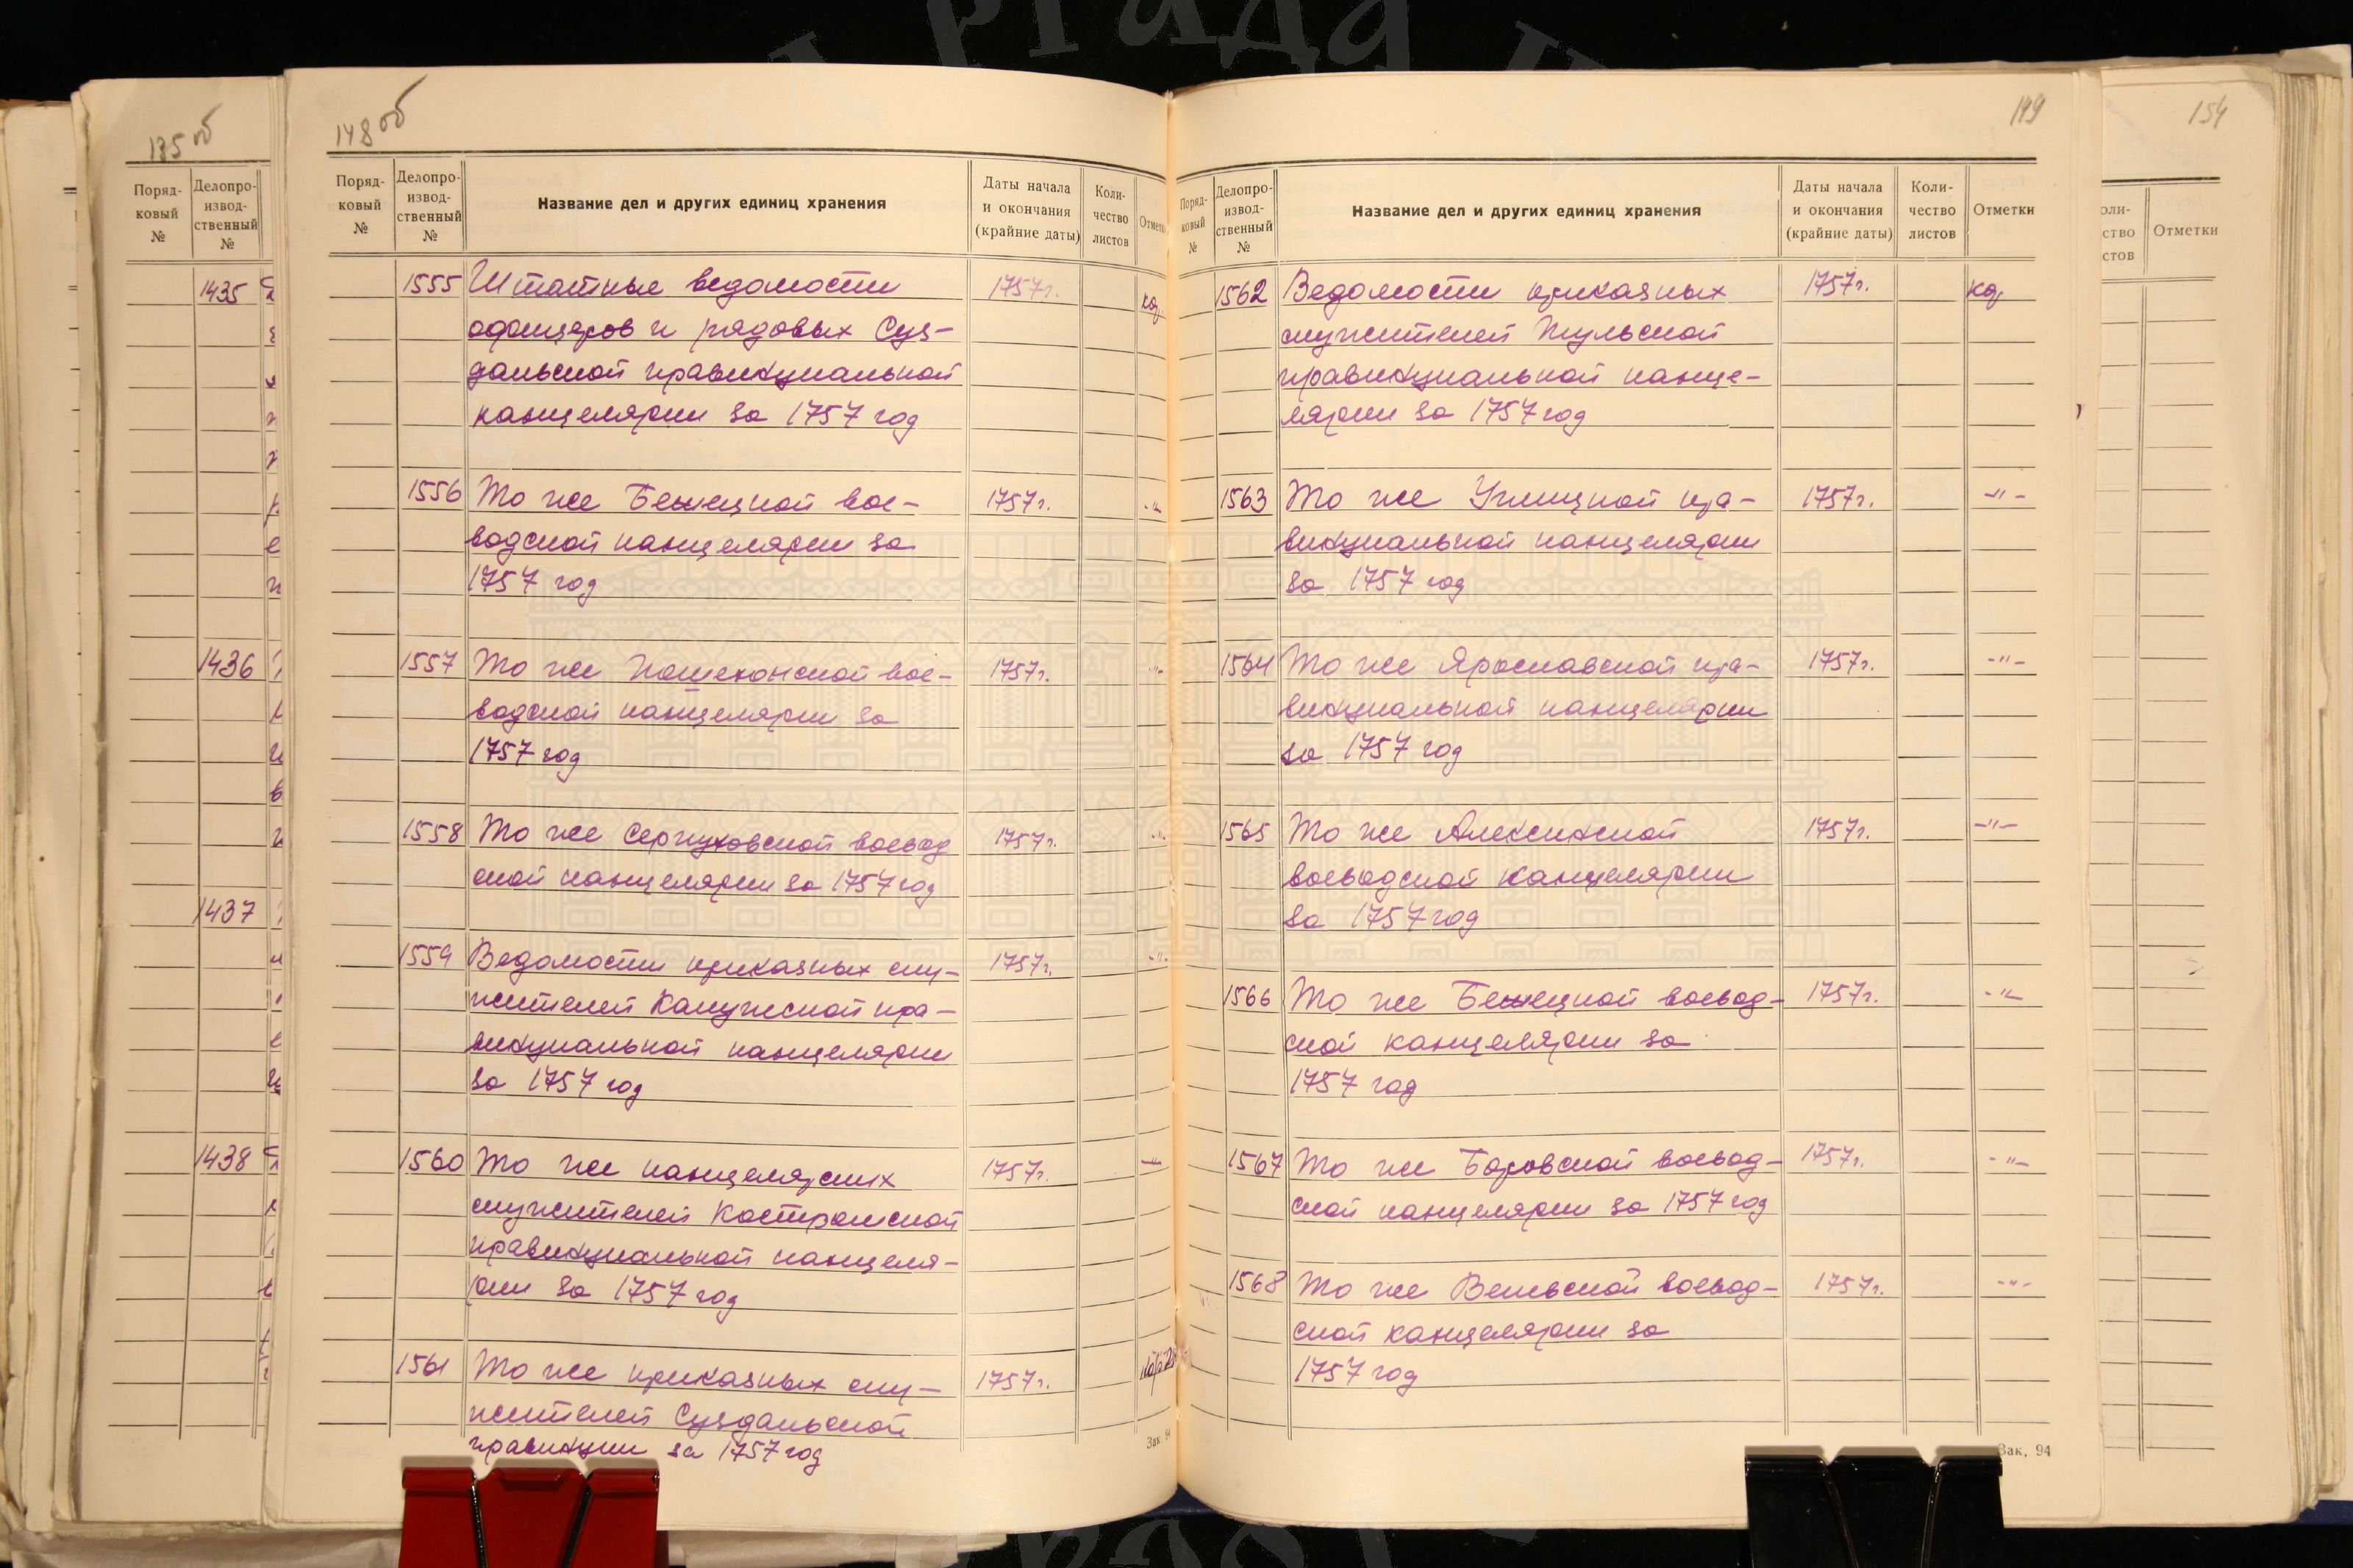 135 об
Поряд-
ковый
№
Делопро-
извод-
ственный
№
1435
1436
1437
1438
148 об
Поряд-
ковый
№
Делопро-
извод-
ственный
№
Название дел и других единиц хранения
Даты начала
и окончания
(крайние даты)
Коли-
чество
листов
1555 Штатные ведомости 1757 г.
офицеров и рядовых Суз-
дальской провинциальной
канцелярии за 1757 год
1556 То же Бежецкой вое- 1757 г. -"-
водской канцелярии за
1757 год
1557 То же Пошехонской вое- 1757 г. -"-
водской канцелярии за
1757 год
1558 То же Серпуховской воевод 1757 г. -"-
ской канцелярии за 1757 год
1559 Ведомости приказных слу- 1757 г. -"-
жителей Калужской про-
винциальной канцелярии
за 1757 год
1560 То же канцелярских 1757 г. -"-
служителей Костромской
провинциальной канцеля-
рии за 1757 год
1561 То же приказных слу- 1757 г.
жителей Суздальской
провинции за 1757 год
Зак. 94
149
Поряд-
ковый
№
Делопро-
извод-
ственный
№
Название дел и других единиц хранения
Даты начала
и окончания
(крайние даты)
Коли-
чество
листов
Отметки
1562 Ведомости приказных 1757 г.
служителей Тульской
провинциальной канце-
лярии за 1757 год
1563 То же Углицкой про- 1757 г. -"-
винциальной канцелярии
за 1757 год
1564 То же Ярославской про- 1757 г. -"-
винциальной канцелярии
за 1757 год
1565 То же Алексинской 1757 г. -"-
воеводской канцелярии
за 1757 год
1566 То же Бежецкой воевод- 1757 г. -"-
ской канцелярии за
1757 год
1567 То же Боровской воевод- 1757 г. -"-
ской канцелярии за 1757 год
1568 То же Вельской воевод- 1757 г. -"-
ской канцелярии за
1757 год
Зак. 94
154
оли-
ство
стов
Отметки